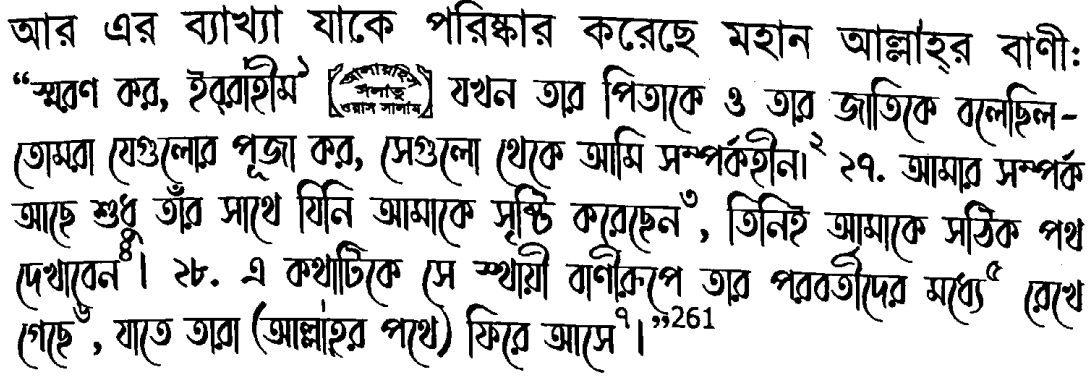 আর এর ব্যাখ্যা যাকে পরিষ্কার করেছে মহান আল্লাহ্‌র বাণী:
“স্মরণ কর, ইব্‌রাহীম১ [আলায়হিস সলাতু ওয়াস সালাম] যখন তার পিতাকে ও তার জাতিকে বলেছিল-
তোমরা যেগুলোর পূজা কর, সেগুলো থেকে আমি সম্পর্কহীন।২ ২৭. আমার সম্পর্ক
আছে শুধু তাঁর সাথে যিনি আমাকে সৃষ্টি করেছেন৩, তিনিই আমাকে সঠিক পথ
দেখাবেন৪। ২৮. এ কথাটিকে সে স্থায়ী বাণীরূপে তার পরবর্তীদের মধ্যে৫ রেখে
গেছে৬, যাতে তারা (আল্লাহর পথে) ফিরে আসে৭।”261